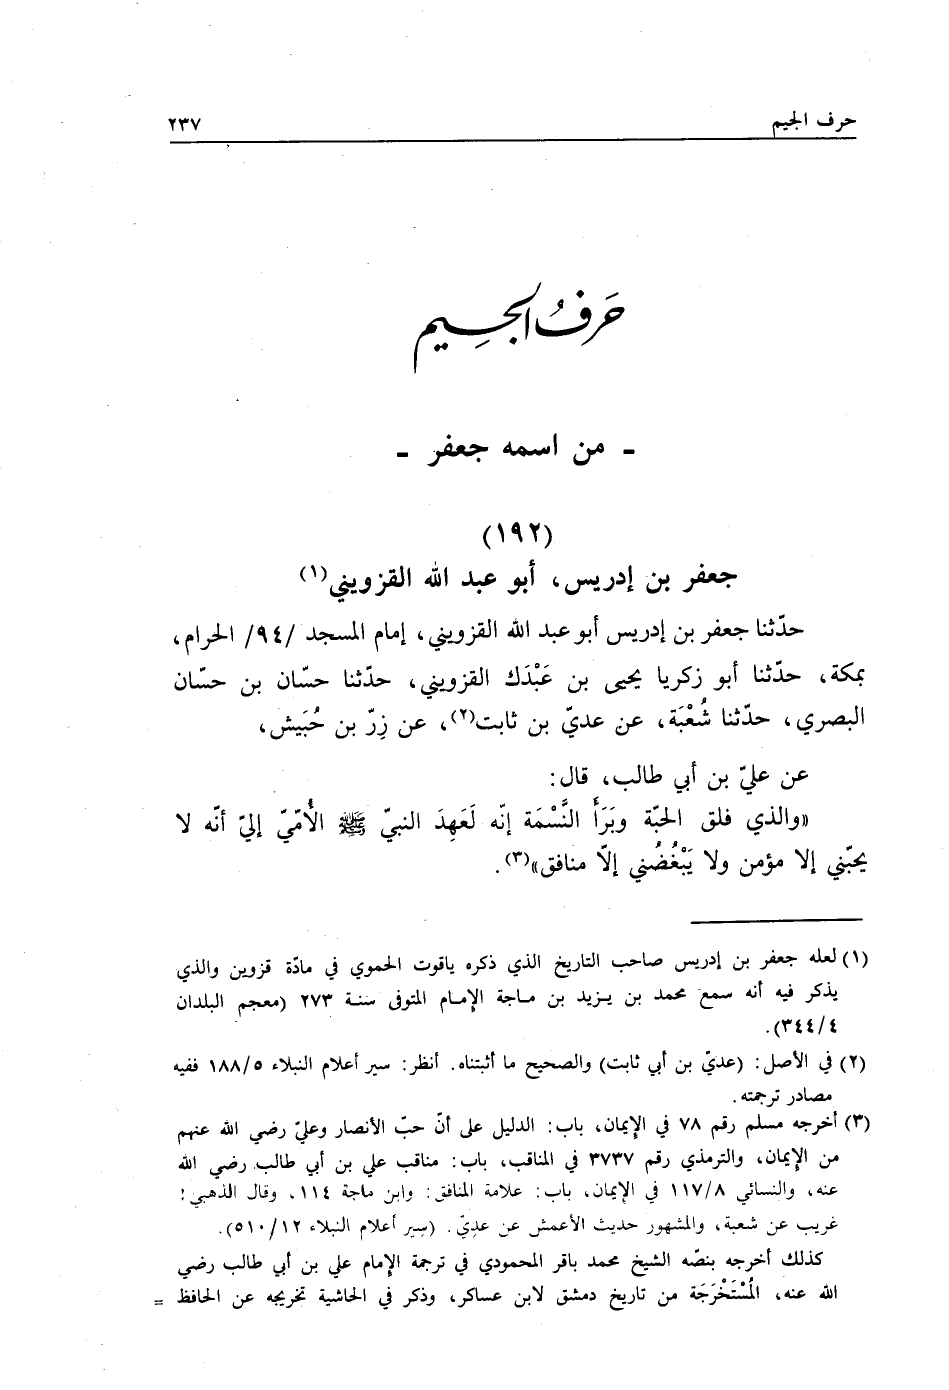 حرف الجيم ٢٣٧
حَرفُ الجِيم
- من اسمه جعفر -
(١٩٢)
جعفر بن إدريس، أبو عبد الله القزويني(١)
حدّثنا جعفر بن إدريس أبو عبد الله القزويني، إمام المسجد /٩٤/ الحرام،
بمكة، حدّثنا أبو زكريا يحيى بن عَبْدَك القزويني، حدّثنا حسّان بن حسّان
البصري، حدّثنا شُعْبَة، عن عديّ بن ثابت(٢)، عن زِرّ بن حُبَيش،
عن عليّ بن أبي طالب، قال:
«والذي فلق الحبّة وبَرَأَ النَّسْمَة إنّه لَعَهِدَ النبيّ ﷺ الأُمّيّ إليّ أنّه لا
يحبّني إلا مؤمن ولا يَبْغُضُني إلاّ منافق»(٣).
(١) لعله جعفر بن إدريس صاحب التاريخ الذي ذكره ياقوت الحموي في مادّة قزوين والذي
يذكر فيه أنه سمع محمد بن يزيد بن ماجة الإمام المتوفى سنة ٢٧٣ (معجم البلدان
٣٤٤/٤).
(٢) في الأصل: (عديّ بن أبي ثابت) والصحيح ما أثبتناه. أنظر: سير أعلام النبلاء ١٨٨/٥ ففيه
مصادر ترجمته.
(٣) أخرجه مسلم رقم ٧٨ في الإيمان، باب: الدليل على أنّ حبّ الأنصار وعليّ رضي الله عنهم
من الإيمان، والترمذي رقم ٣٧٣٧ في المناقب، باب: مناقب علي بن أبي طالب رضي الله
عنه، والنسائي ١١٧/٨ في الإيمان، باب: علامة المنافق: وابن ماجة ١١٤، وقال الذهبي:
غريب عن شعبة، والمشهور حديث الأعمش عن عديّ. (سير أعلام النبلاء ٥١٠/١٢).
كذلك أخرجه بنصّه الشيخ محمد باقر المحمودي في ترجمة الإمام علي بن أبي طالب رضي
الله عنه، المُسْتَخْرَجَة من تاريخ دمشق لابن عساكر، وذكر في الحاشية تخريجه عن الحافظ =